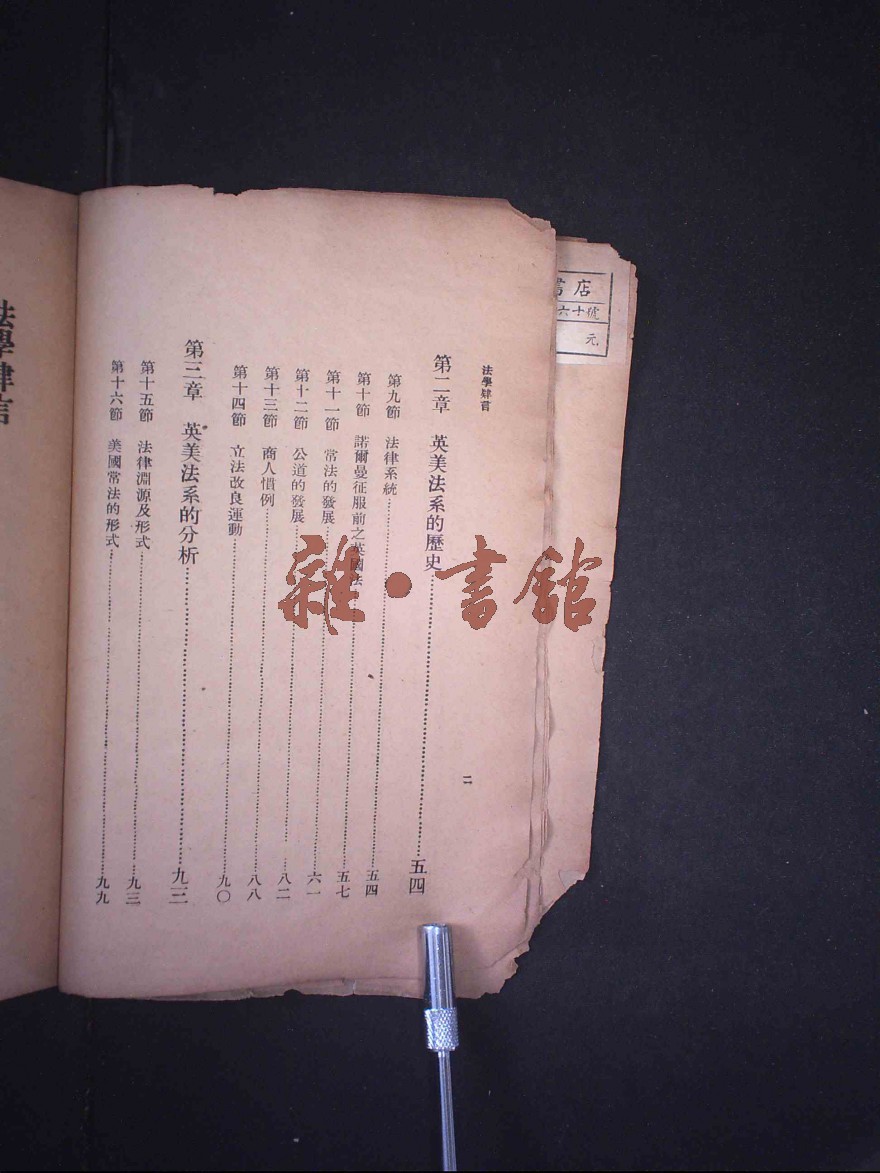 法學肄言
第二章 英美法系的歷史……五四
第九節 法律系統……五四
第十節 諾爾曼征服前之英國法……五七
第十一節 常法的發展……六一
第十二節 公道的發展……八二
第十三節 商人慣例……八八
第十四節 立法改良運動……九〇
第三章 英美法系的分析……九三
第十五節 法律淵源及形式……九三
第十六節 美國常法的形式……九九
二
書店
六十號
元
法學肄言
雜·書館